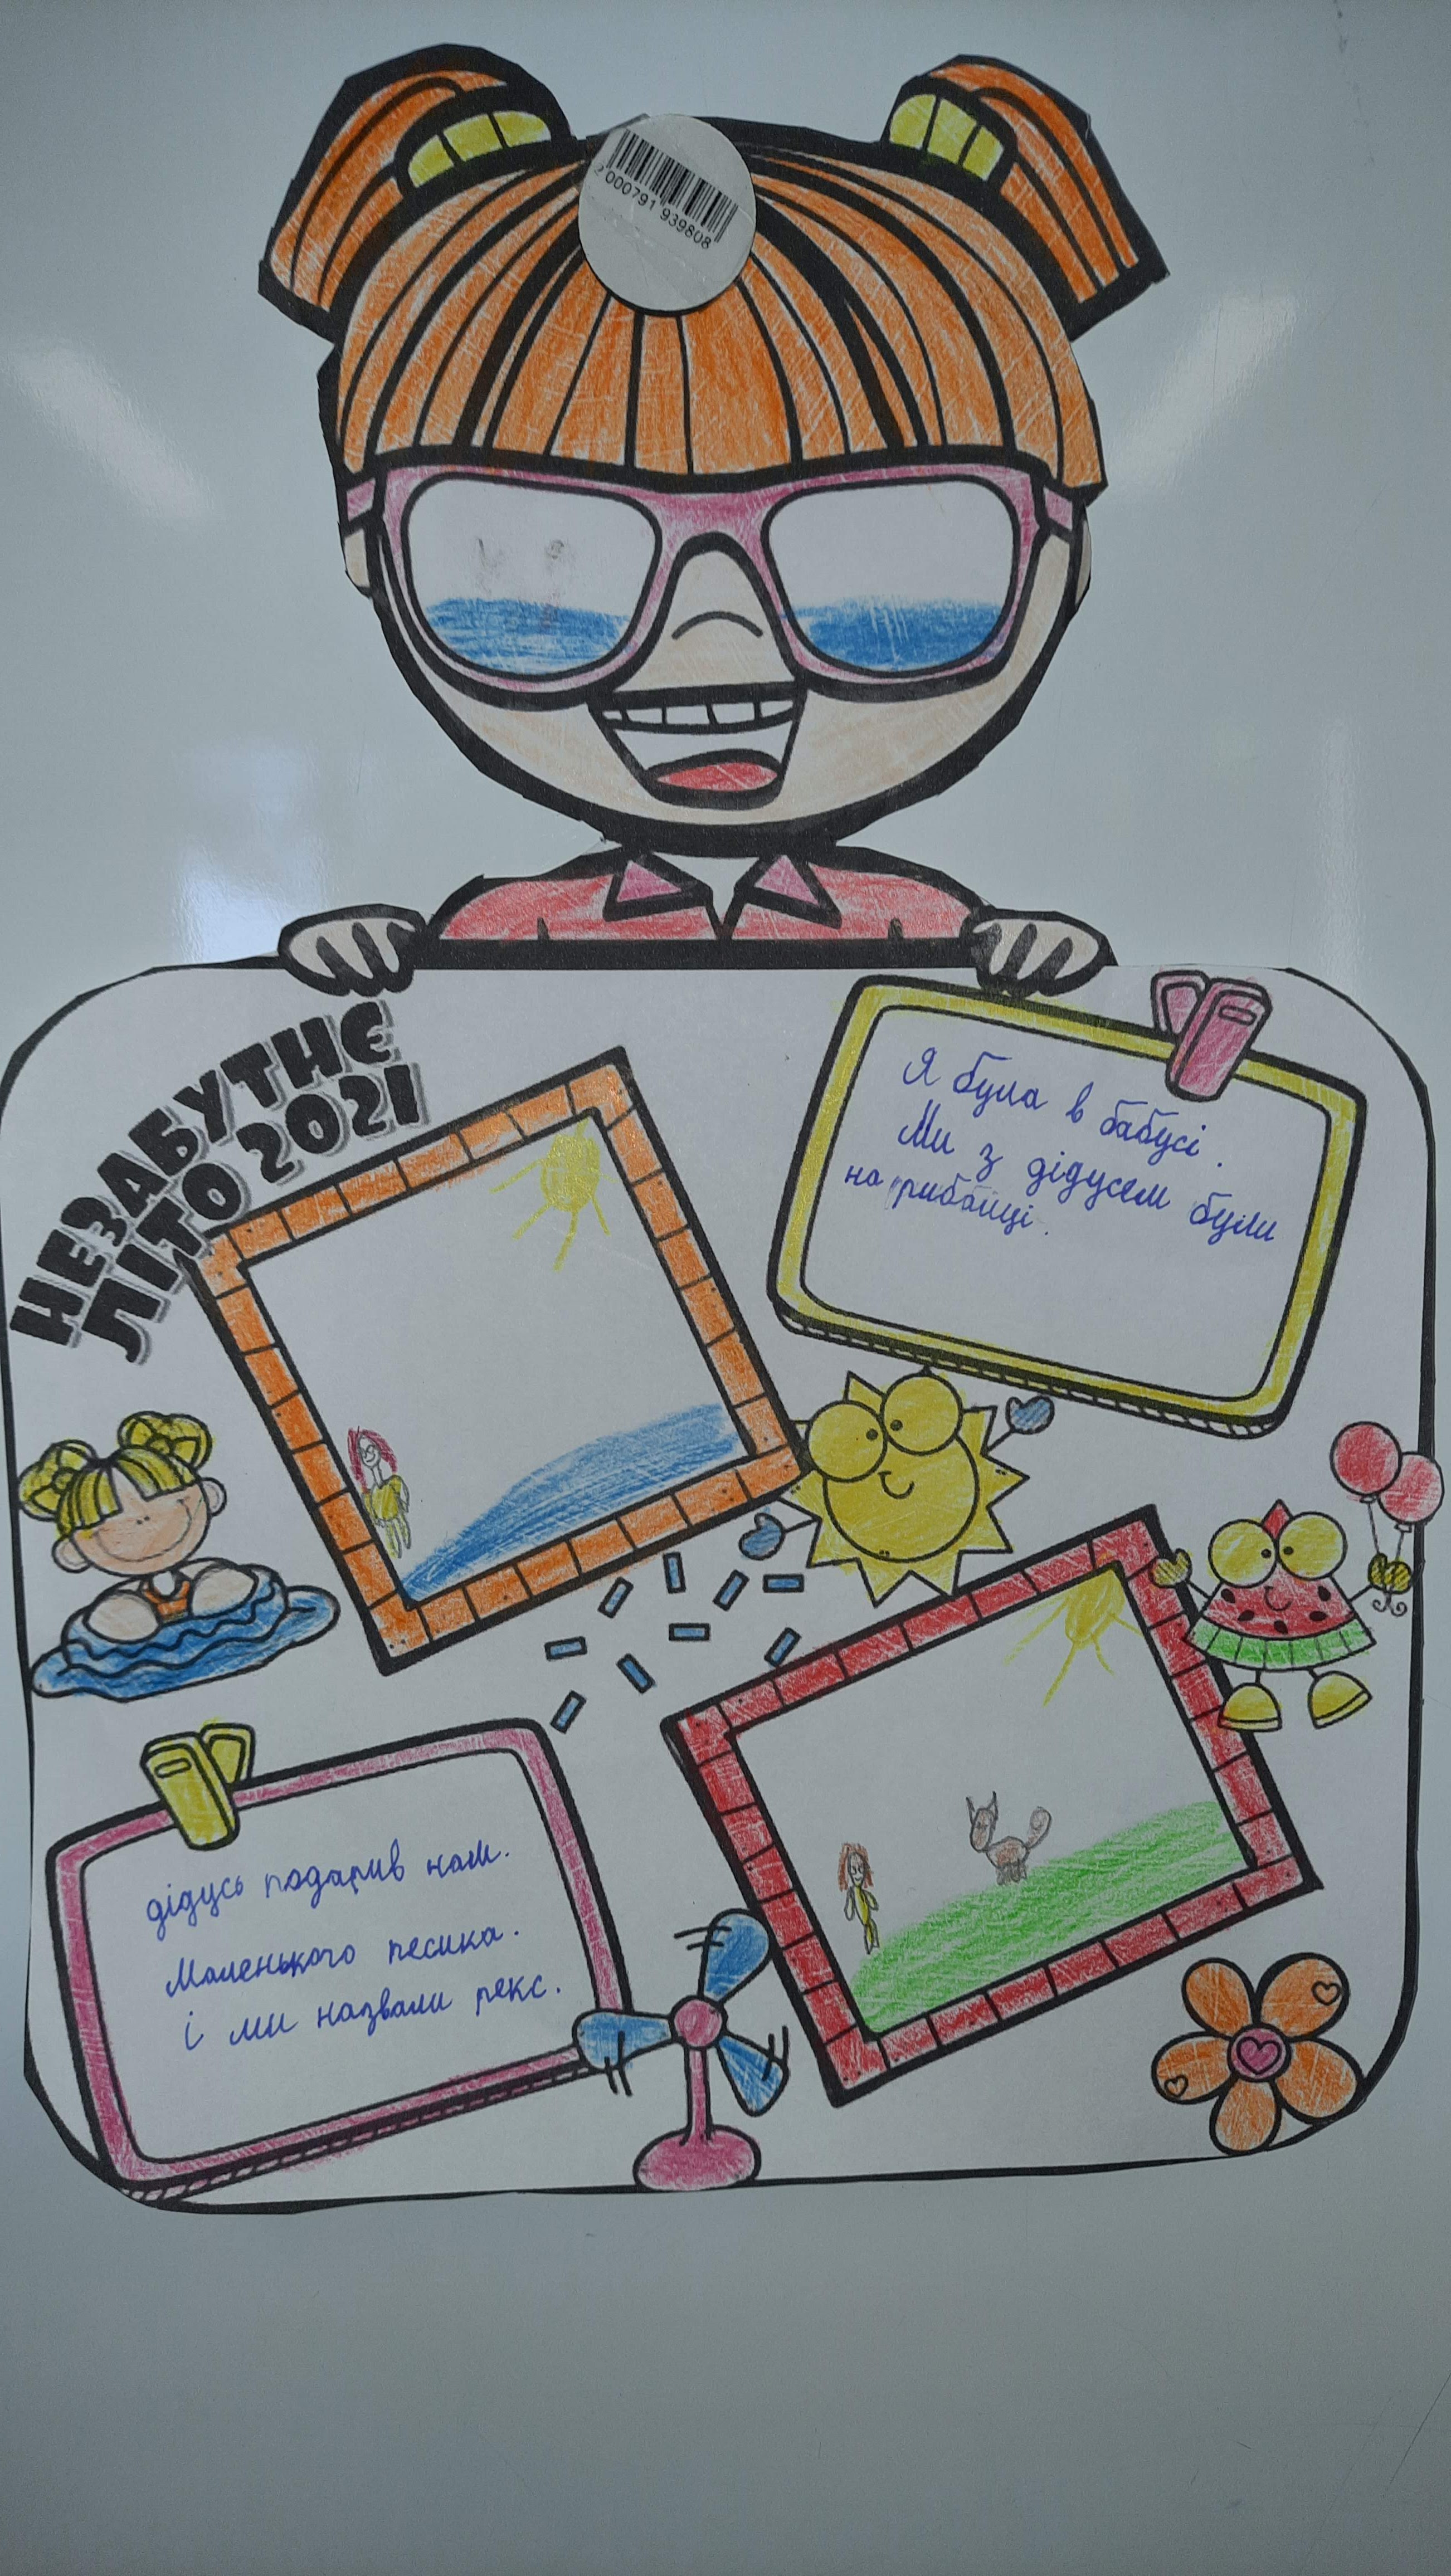 2 000791 939808
НЕЗАБУТНЄ
ЛІТО 2021
Я була в бабусі.
Ми з дідусем були
на рибалці.
дідусь подарив нам.
Маленького песика.
і ми назвали рекс.